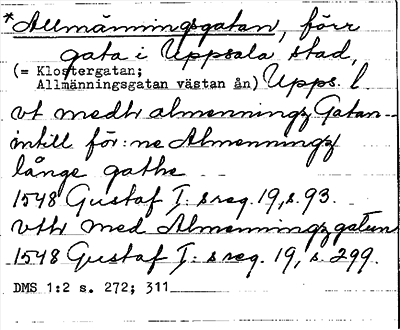 *Allmänningsgatan, förr
gata i Uppsala stad,
(= Klostergatan;
Allmänningsgatan västan ån) Upps. l.
vt medtr almenningz Gatan --
intill för:ne Almenningz
långe gathe
1548 Gustaf I:s reg. 19, s. 93.
vthr med Almenningz gatun
1548 Gustaf I:s reg. 19, s. 299.
DMS 1:2 s. 272; 311